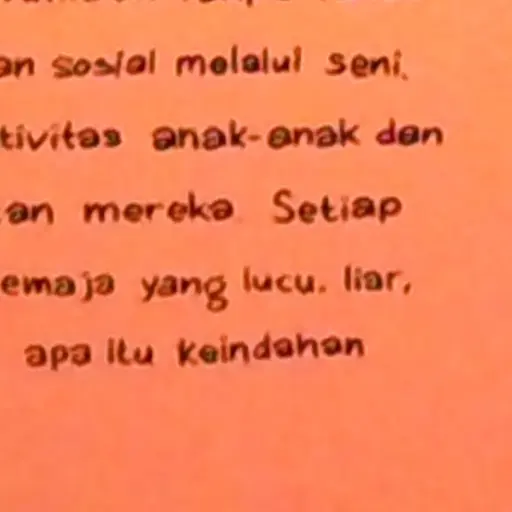 an sosial melalui seni.
tivitas anak-anak dan
an mereka Setiap
emaja yang lucu. liar,
apa itu keindahan